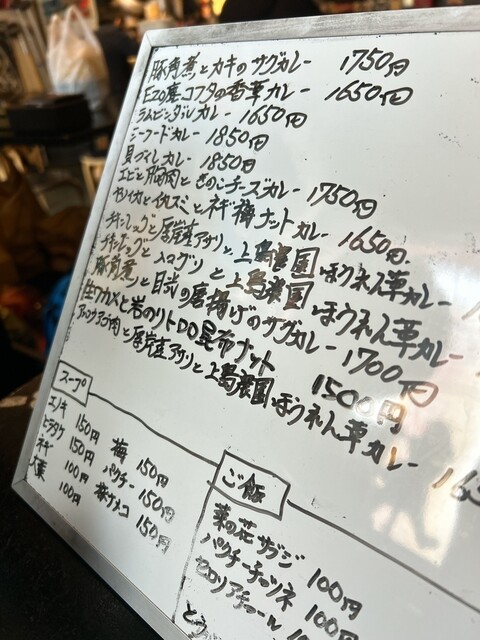 豚角煮とカキのサグカレー 1750円
EZO鹿コフタの香草カレー 1650円
ラムビンダルカレー 1650円
シーフードカレー 1850円
貝づくしカレー 1850円
エビと豚肉ときのこチーズカレー 1750円
ヤリイカとイカスミとネギ梅ナットカレー 1650円
チキンレッグと厚岸産アサリと、上島農園・ほうれん草カレー
チキンレッグと ハマグリと 上島農園・ほうれん草カレー
豚角煮と目光の唐揚げのサグカレー 1700円
生ワカメと岩のりトロロ昆布ナット 1500円
厚岸産アサリと上島農園・ほうれん草カレー 165
スープ
エノキ 150円
ヒラタケ 150円
ネギ 100円
大葉 100円
梅 150円
パクチー 150円
150円
ご飯
菜の花サブジ 100円
パクチーチャツネ 100円
セロリアチャール